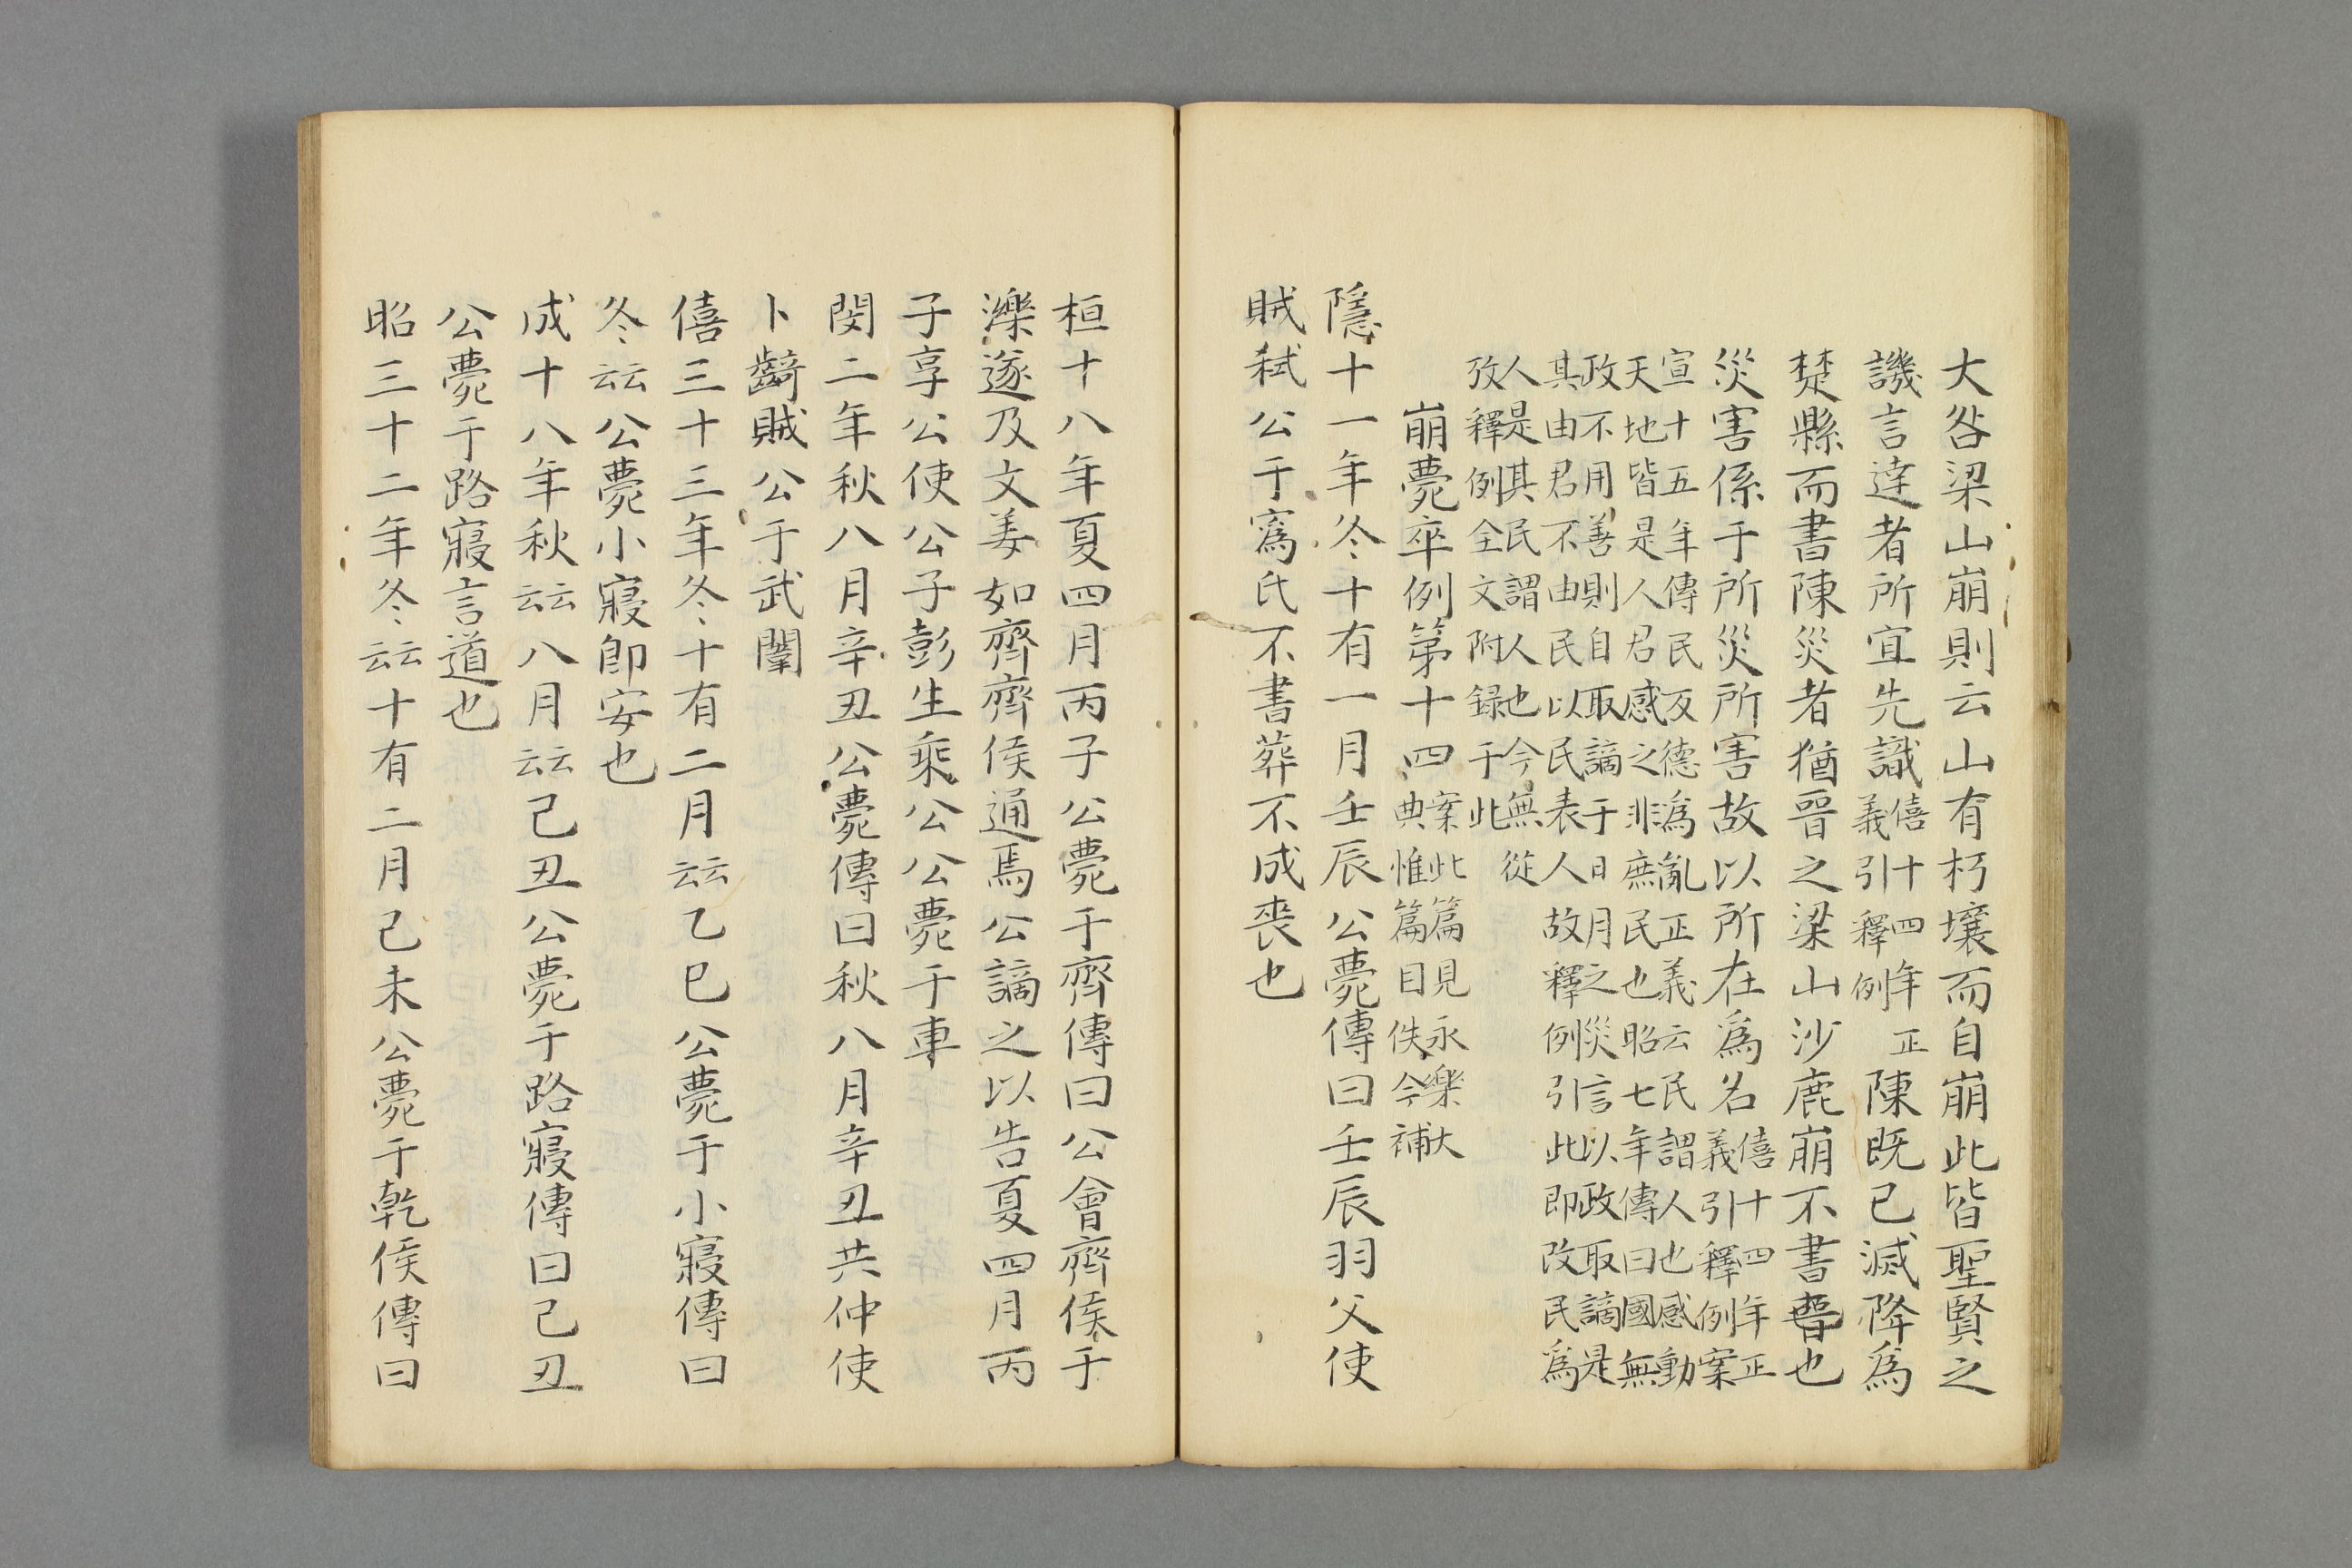 大咎梁山崩則云山有朽壤而自崩此皆聖賢之
譏言達者所宜先識僖十四年正義引釋例陳既已滅降為
楚縣而書陳災者猶晉之梁山沙鹿崩不書晉也
災害係于所災所害故以所在爲名僖十四年正義引釋例案
宣十五年傳民反德為亂正義云民謂人也感動
天地皆是人君感之非庶民也昭七年傳曰國無
政不用善則自取謫于日月之災言以政取謫是
其由君不由民以民表人故釋例引此即改民爲
人是其民謂人也今無從
攷釋例全文附録于此
崩薨卒例第十四案此篇見永樂大典惟篇目佚今補
隱十一年冬十有一月壬辰公薨傳曰壬辰羽父使
賊弒公于寪氏不書葬不成喪也
桓十八年夏四月丙子公薨于齊傳曰公會齊侯于
濼遂及文姜如齊齊侯通焉公謫之以告夏四月丙
子享公使公子彭生乘公公薨于車
閔二年秋八月辛丑公薨傳曰秋八月辛丑共仲使
卜齮賊公于武闈
僖三十三年冬十有二月云云乙巳公薨于小寢傳曰
冬云云公薨小寢即安也
成十八年秋云云八月云云己丑公薨于路寢傳曰己丑
公薨于路寢言道也
昭三十二年冬云云十有二月己未公薨于乾侯傳曰